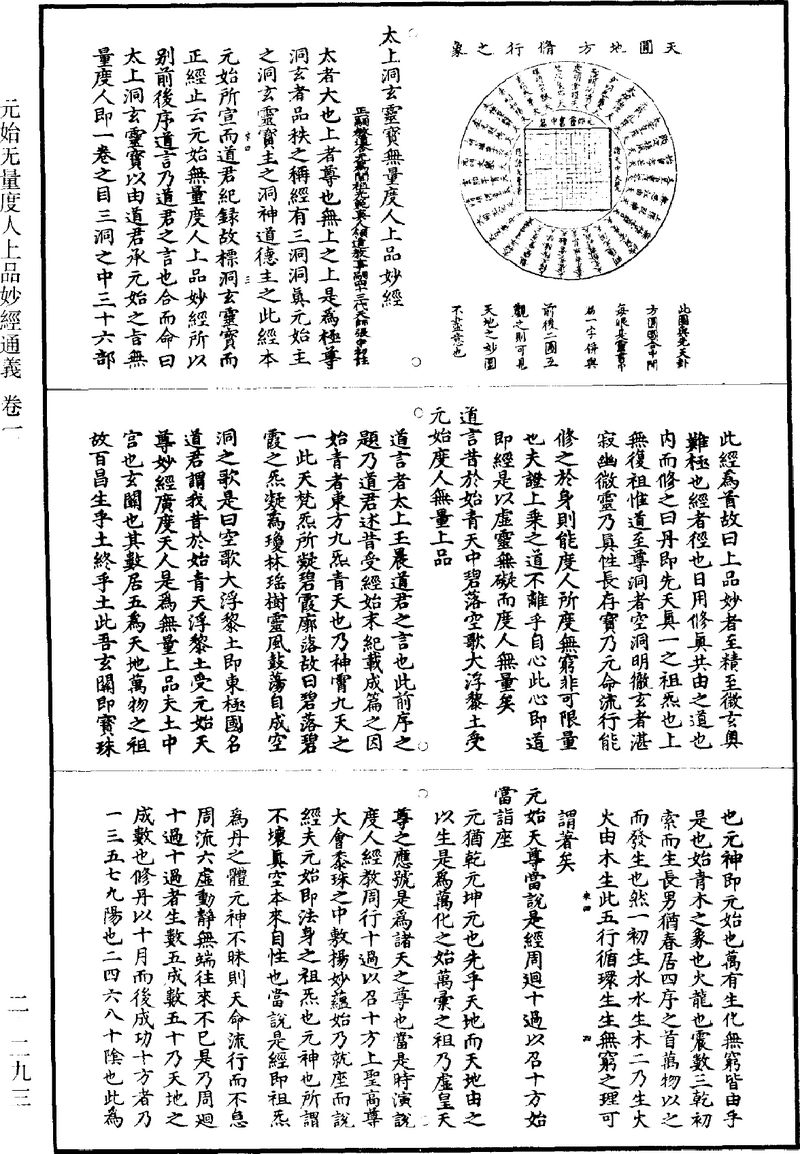 天圓地方脩行之象
此圖與先天卦
方圓圖合中閒
每眼是靈書中
篇一字併與
前後二圖互
觀之則可見
天地之妙圖
不盡意也
太上洞玄靈寶無量度人上品妙經
太者大也上者尊也無上之上是為極尊
洞玄者品秩之稱經有三洞洞真元始主
之洞玄靈寶主之洞神道德主之此經本
元始所宣而道君紀錄故標洞玄靈寶而
正經止云元始無量度人上品妙經所以
別前後序道言乃道君之言也合而命曰
太上洞玄靈寶以由道君承元始之旨無
量度人即一卷之目三洞之中三十六部
此經為首故曰上品妙者至精至微玄奧
難極也經者徑也日用修真共由之道也
內而修之曰丹即先天真一之祖炁也上
無復祖惟道至尊洞者空洞明徹玄者湛
寂幽微靈乃真性長存寶乃元命流行能
修之於身則能度人所度無窮非可限量
也夫證上乘之道不離乎自心此心即道
即經是以虛靈無礙而度人無量矣
道言昔於始青天中碧落空歌大浮黎土受
元始度人無量上品
道言者太上玉晨道君之言也此前序之
題乃道君述昔受經始末紀載成篇之因
始青者東方九炁青天也乃神霄九天之
一此天梵炁所凝碧霞廓落故曰碧落碧
霞之炁凝為瓊林瑤樹靈風鼓蕩自成空
洞之歌是曰空歌大浮黎土即東極國名
道君謂我昔於始青天浮黎土受元始天
尊妙經廣度天人是為無量上品夫土中
宮也玄關也其數居五為天地萬物之祖
故百昌生乎土終乎土此吾玄關即寶珠
也元神即元始也萬有生化無窮皆由乎
是也始青木之象也火龍也震數三乾初
索而生長男猶春居四序之首萬物以之
而發生也然一初生水水生木二乃生火
火由木生此五行循環生生無窮之理可
謂著矣
元始天尊當說是經周迴十過以召十方始
當詣座
元猶乾元坤元也先乎天地而天地由之
以生是為萬化之始萬彙之祖乃虛皇天
尊之應號是為諸天之尊也當是時演說
度人經教周行十過以召十方上聖高尊
大會黍珠之中敷揚妙蘊始乃就座而說
經夫元始即法身之祖炁也元神也所謂
不壞真空本來自性也當說是經即祖炁
為丹之體元神不昧則天命流行而不息
周流六虛動靜無端往來不已是乃周迴
十過十過者生數五成數五十乃天地之
成數也修丹以十月而後成功十方者乃
一三五七九陽也二四六八十陰也此為
元始无量度人上品妙經通義 卷一
二—二九三